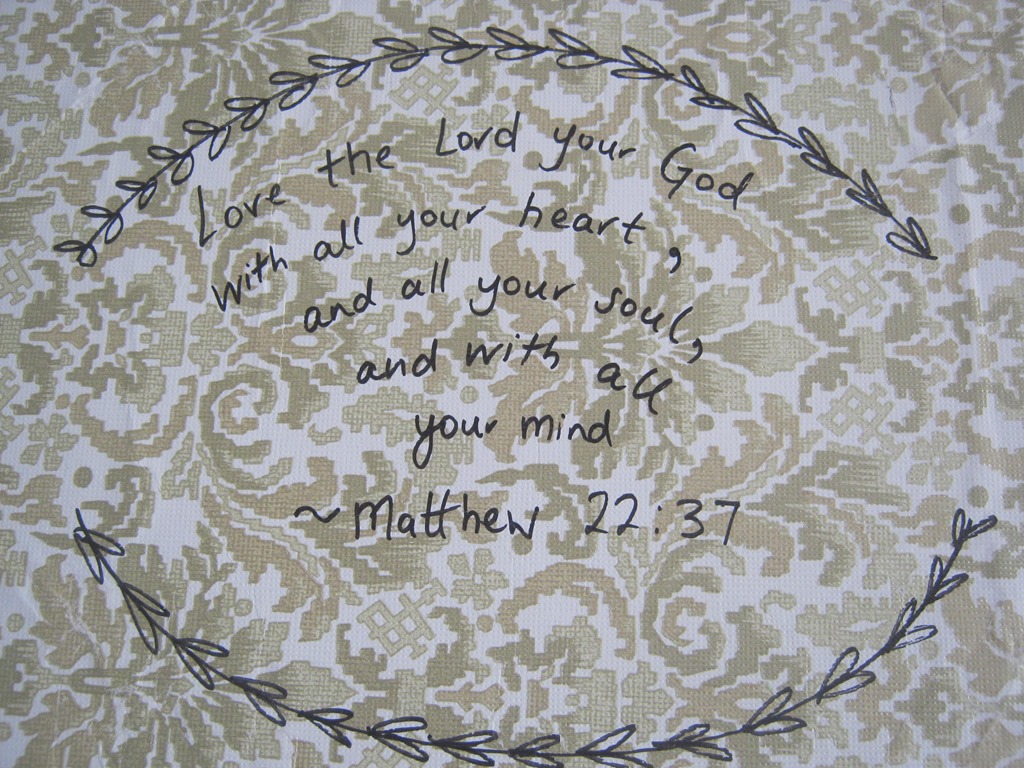 Love the Lord your God
with all your heart,
and all your soul,
and with all
your mind
~Matthew 22:37